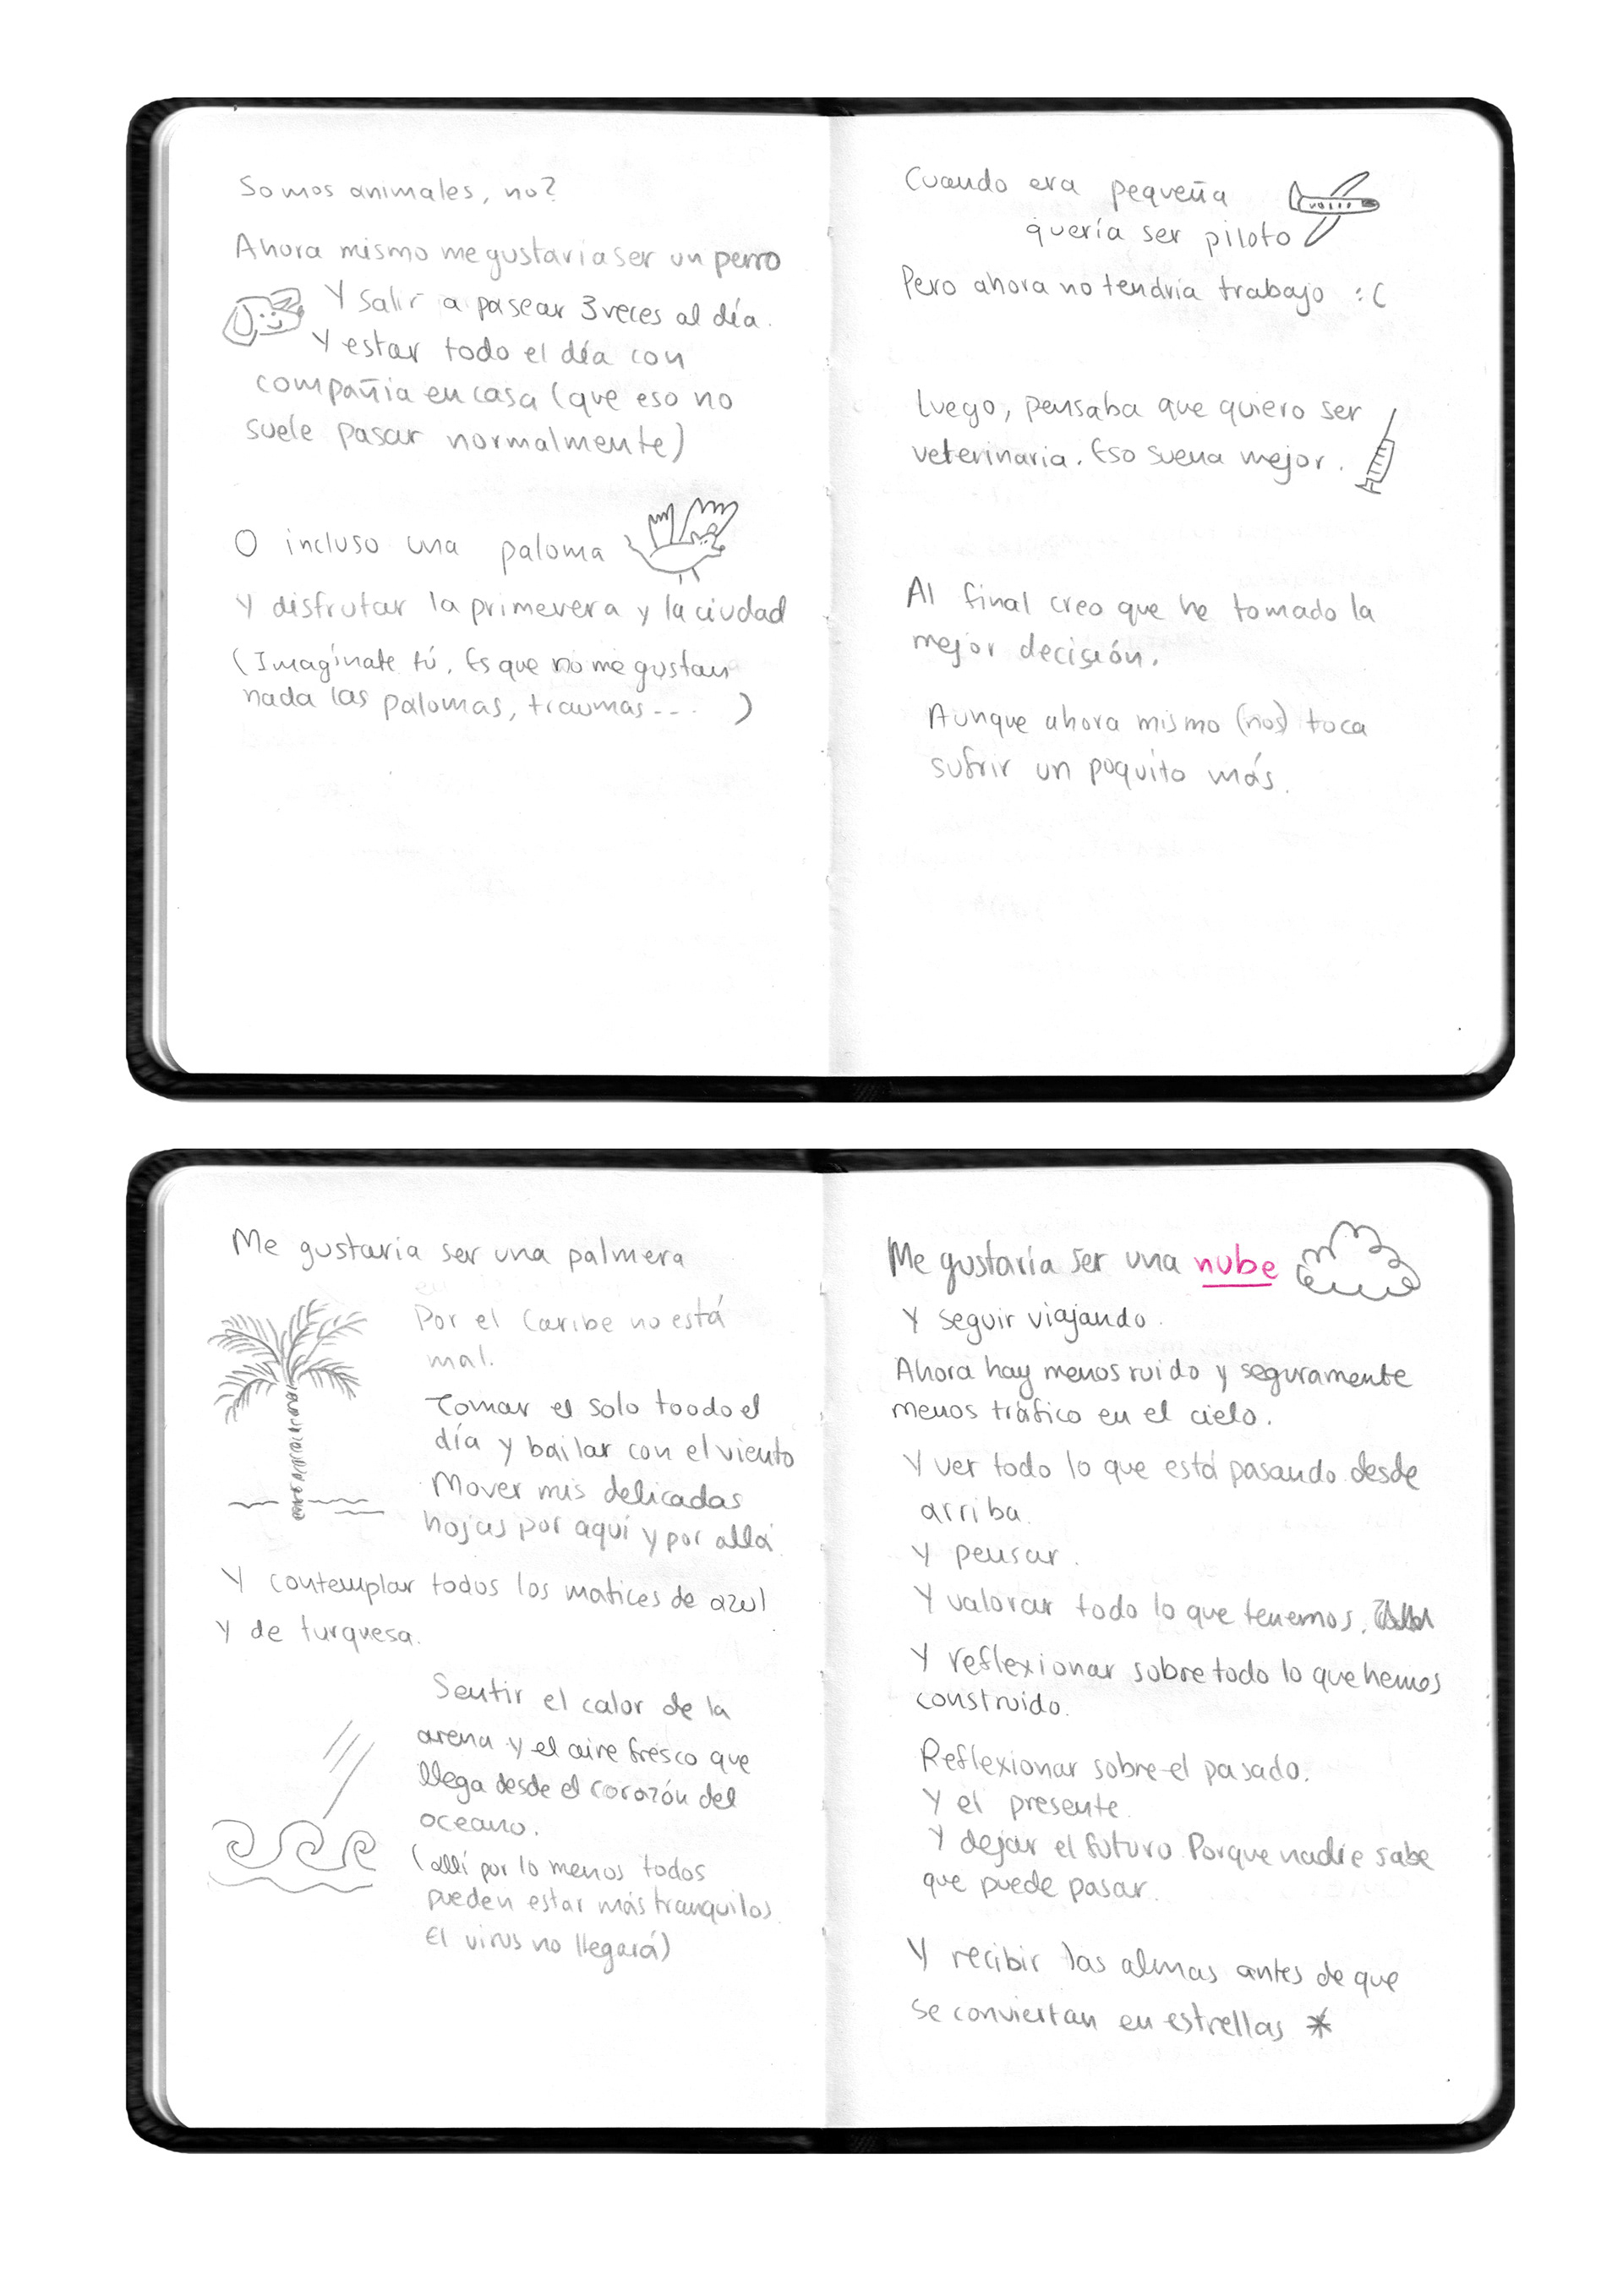 Somos animales, no?
Ahora mismo me gustaria ser un perro
Y salir a pasear 3 veces al día.
Y estar todo el día con
compañia en casa (que eso no
suele pasar normalmente)
O incluso una paloma
Y disfrutar la primevera y la ciudad
(Imagínate tú. Es que no me gustan
nada las palomas, traumas... )
Cuando era pequeña
quería ser piloto
Pero ahora no tendría trabajo :(
Luego, pensaba que quiero ser
veterinaria. Eso suena mejor.
Al final creo que he tomado la
mejor decisión.
Aunque ahora mismo (nos) toca
sufrir un poquito más.
Me gustaría ser una palmera
Por el Caribe no está
mal.
Tomar el solo toodo el
día y bailar con el viento
Mover mis delicadas
hojas por aquí y por allá.
Y contemplar todos los matices de azul
Y de turquesa.
Sentir el calor de la
arena y el aire fresco que
llega desde el corazón del
oceano.
(allí por lo menos todos
pueden estar más tranquilos.
El virus no llegará)
Me gustaría ser una nube
Y seguir viajando.
Ahora hay menos ruido y seguramente
menos tráfico en el cielo.
Y ver todo lo que está pasando desde
arriba.
Y pensar.
Y valorar todo lo que tenemos.
Y reflexionar sobre todo lo que hemos
construido.
Reflexionar sobre el pasado.
Y el presente.
Y dejar el futuro. Porque nadie sabe
que puede pasar.
Y recibir las almas antes de que
se conviertan en estrellas *